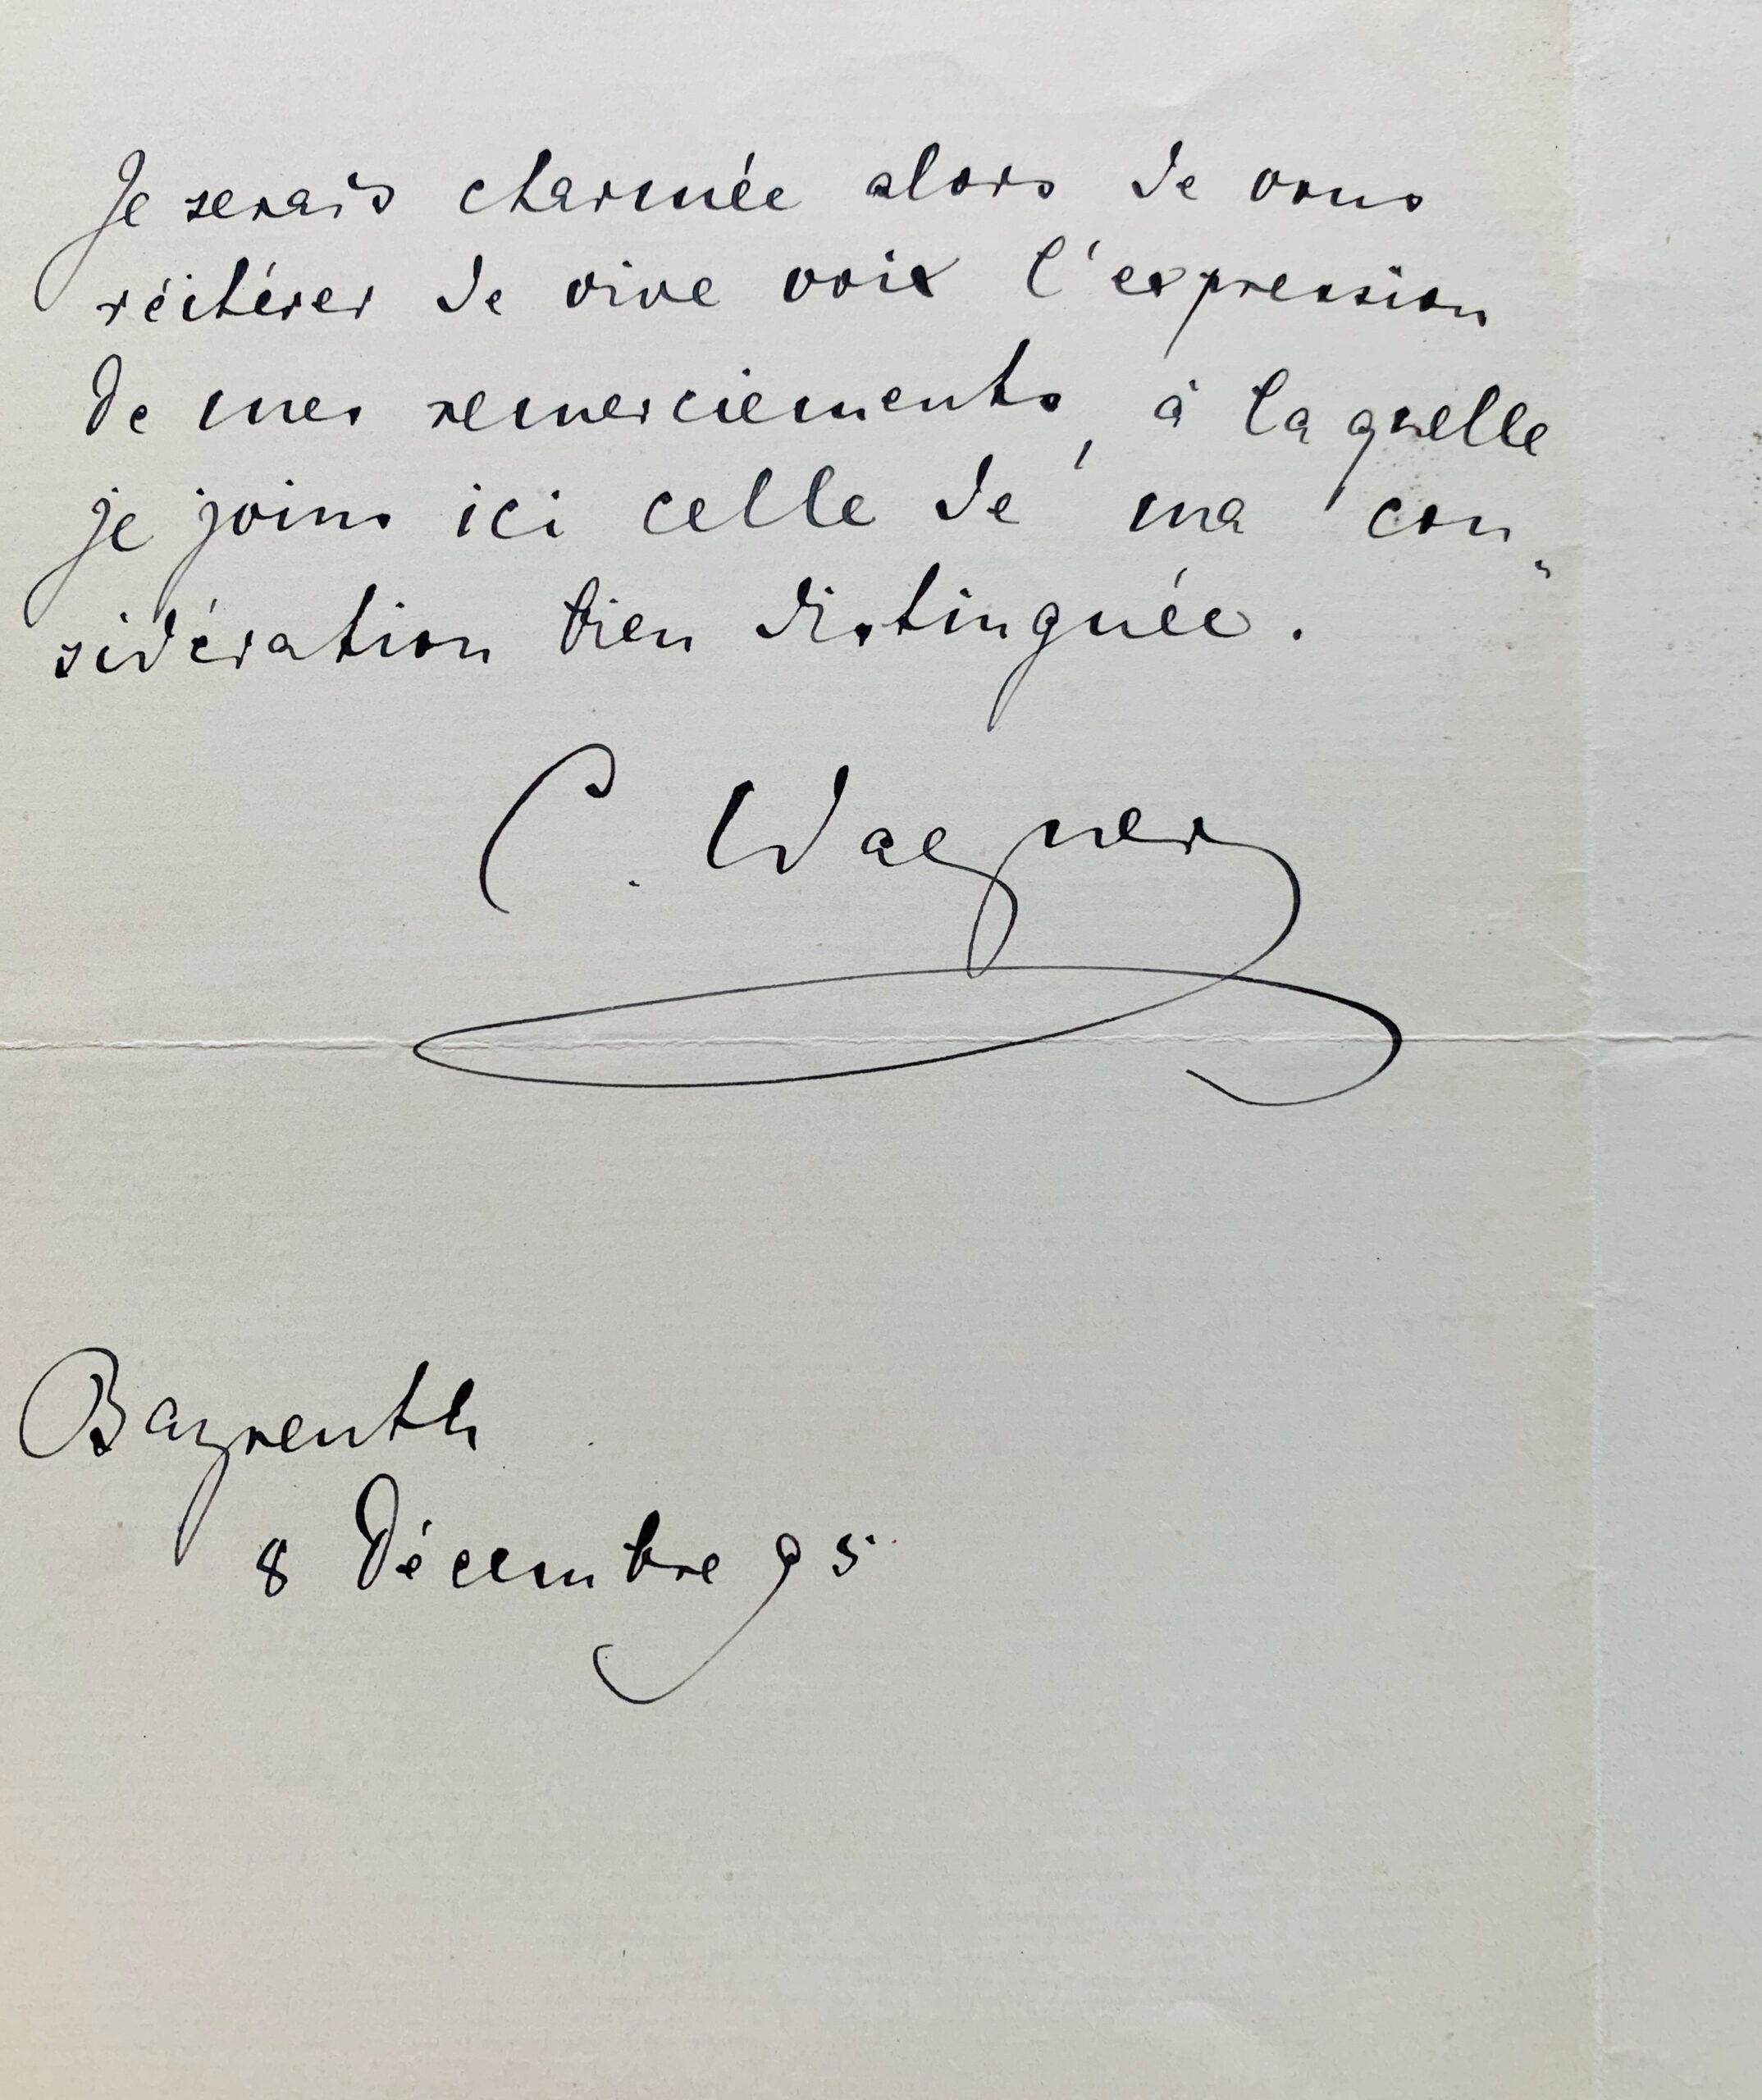 Je serais charmée alors de vous
réitérer de vive voix l'expression
de mes remerciements, à laquelle
je joins ici celle de ma con-
sidération bien distinguée.
C. Wagner
Bayreuth
8 Décembre 95